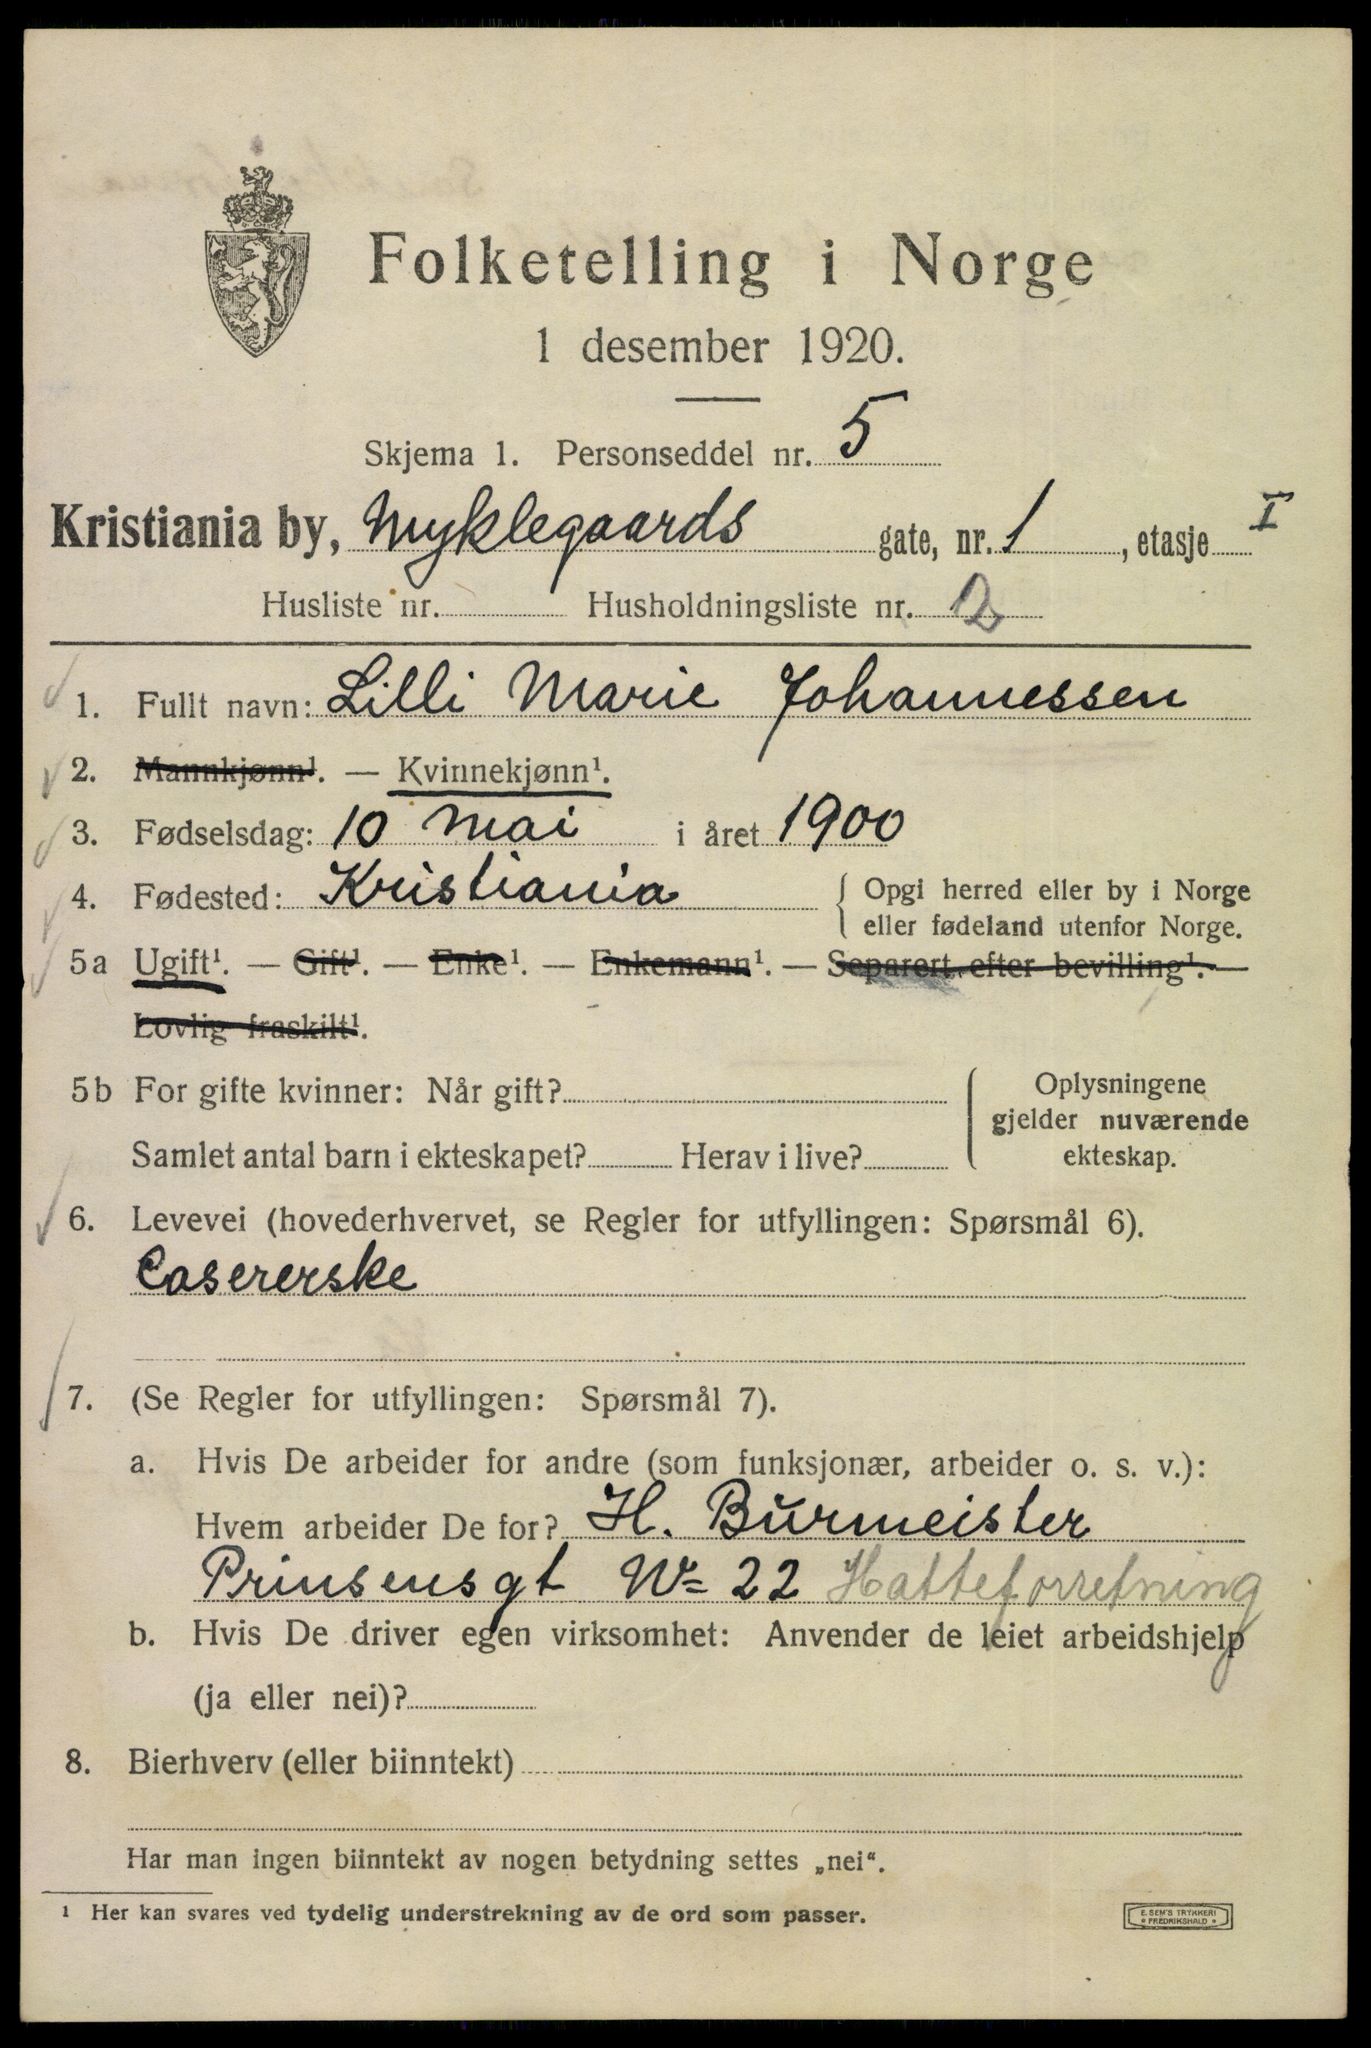 Folketelling i Norge
1 desember 1920.
Skjema 1. Personseddel nr. 5
Kristiania by, Myklegaards gate, nr. 1, etasje I
Husliste nr. Husholdningsliste nr. 2
1. Fullt navn: Lilli Marie Johannessen
2. Mannkjønn¹. — Kvinnekjønn¹.
3. Fødselsdag: 10 mai i året 1900
4. Fødested: Kristiania { Opgi herred eller by i Norge
eller fødeland utenfor Norge.
5a Ugift¹. — Gift¹. — Enke¹. — Enkemann¹. — Separert efter bevilling¹. —
Lovlig fraskilt¹.
5b For gifte kvinner: Når gift? { Oplysningene
gjelder nuværende
Samlet antal barn i ekteskapet? Herav i live? ekteskap.
6. Levevei (hovederhvervet, se Regler for utfyllingen: Spørsmål 6).
Casererske
7. (Se Regler for utfyllingen: Spørsmål 7).
a. Hvis De arbeider for andre (som funksjonær, arbeider o. s. v.):
Hvem arbeider De for? H. Burmeister
Prinsensgt No 22 Hatteforretning
b. Hvis De driver egen virksomhet: Anvender de leiet arbeidshjelp
(ja eller nei)?
8. Bierhverv (eller biinntekt)
Har man ingen biinntekt av nogen betydning settes „nei“.
¹ Her kan svares ved tydelig understrekning av de ord som passer.
E. SEM'S TRYKKERI
FREDRIKSHALD